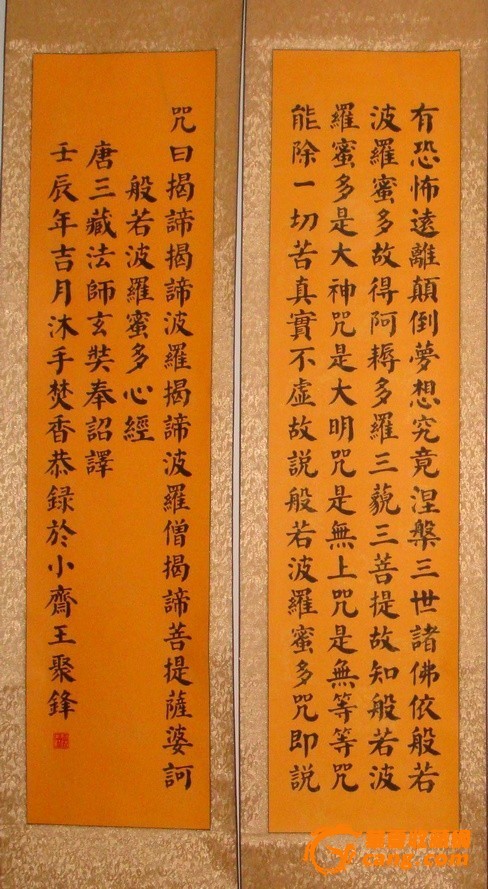 有恐怖遠離顛倒夢想究竟涅槃三世諸佛依般若
波羅蜜多故得阿耨多羅三藐三菩提故知般若波
羅蜜多是大神咒是大明咒是無上咒是無等等咒
能除一切苦真實不虛故説般若波羅蜜多咒即説
咒曰揭諦揭諦波羅揭諦波羅僧揭諦菩提薩婆訶
般若波羅蜜多心經
唐三藏法師玄奘奉詔譯
壬辰年吉月沐手焚香恭録於小齋王聚鋒
cang.com